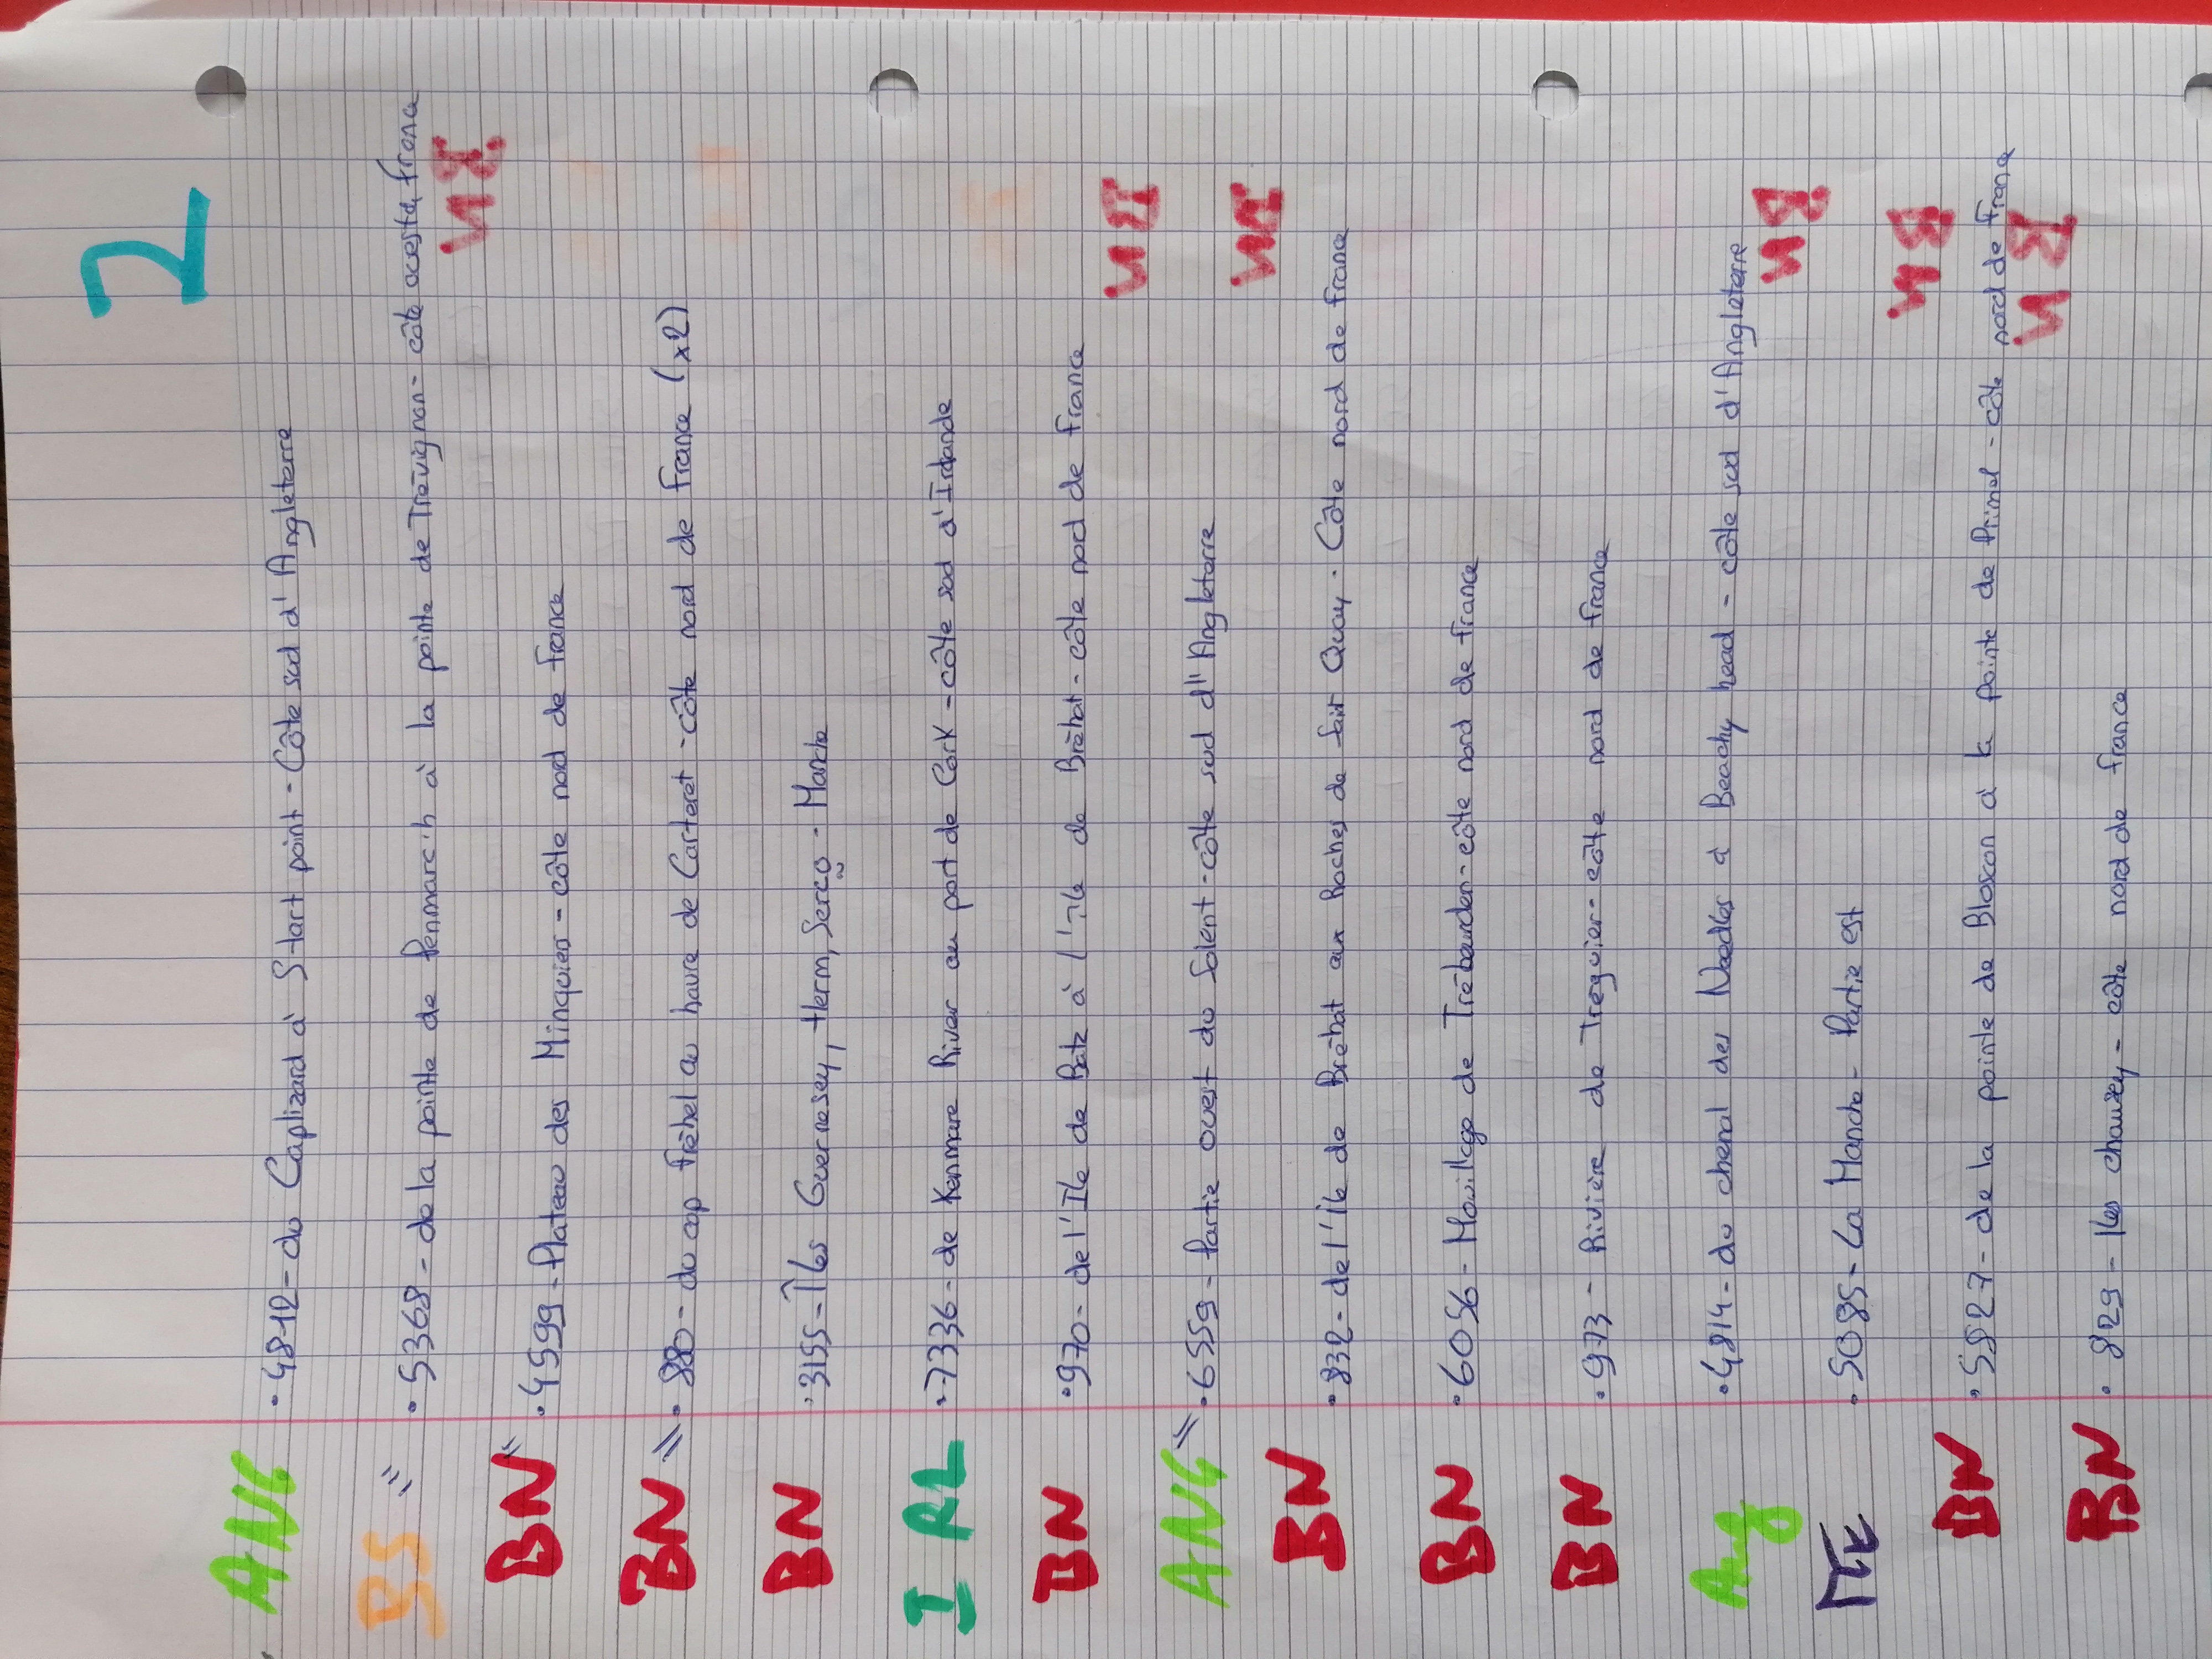 2
ANG · 4812 - du Caplizard à Start point - Côte sud d'Angleterre
BS = · 5368 - de la pointe de Penmarc'h à la pointe de Trévignon - côte ouest d, france
BN = · 4599 - Plateau des Minquiers - côte nord de france
BN = · 880 - du cap fréhel au havre de Carteret - côte nord de france (x2)
BN · 3155 - Îles Guernesey, Herm, Sercq - Manche
IRL · 7336 - de Kenmare River au port de Cork - côte sud d'Irlande
BN · 970 - de l'Ile de Batz à l'île de Bréhat - côte nord de france
ANG = · 6559 - Partie ouest du Solent - côte sud d'Angleterre
BN · 832 - de l'île de Bréhat aux Roches de Saint Quay - Côte nord de france
BN · 6056 - Mouillage de Trébeurden - côte nord de france
BN · 973 - Rivière de Tréguier - côte nord de france
Ang · 4814 - du chenal des Needles à Beachy head - côte sud d'Angleterre
· 5085 - La Manche - Partie est
BN · 5827 - de la pointe de Bloscon à la pointe de Primel - côte nord de france
BN · 829 - Iles chausey - côte nord de france